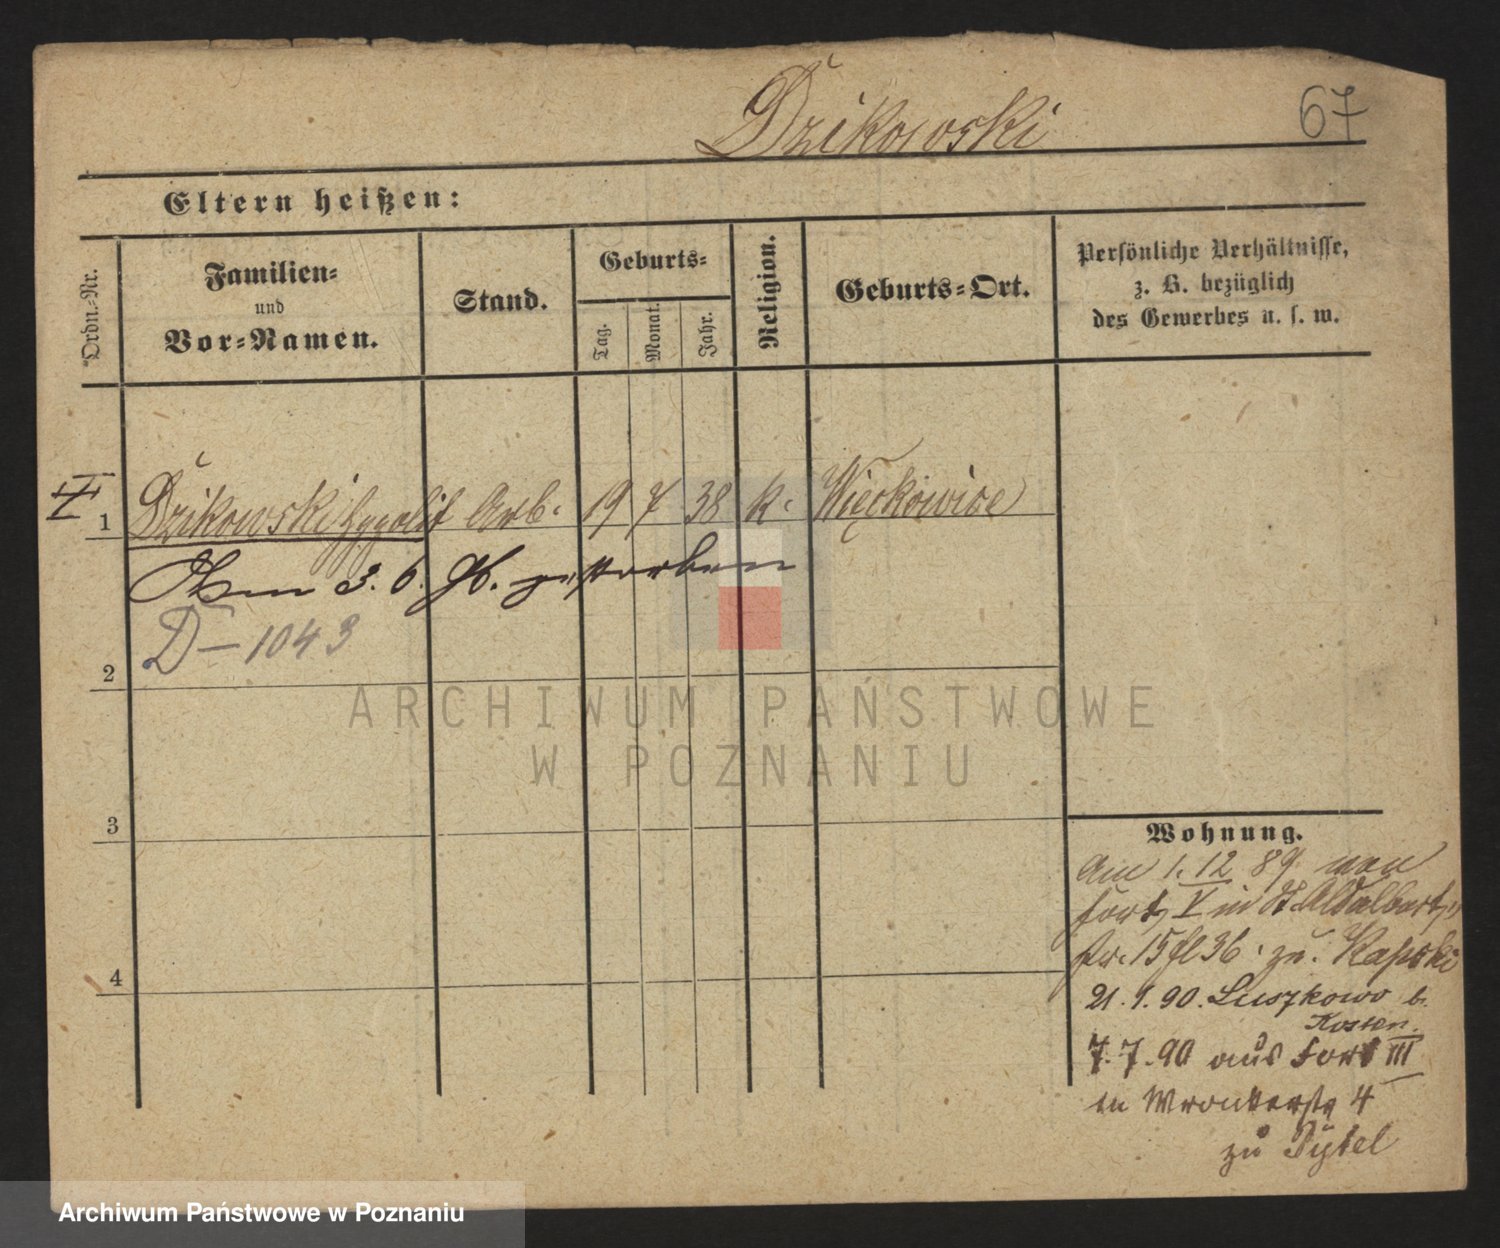 Dzikowski
67
Eltern heißen:
Ordn.-Nr.
Familien-
und
Vor-Namen.
Stand.
Geburts-
Tag.
Monat.
Jahr.
Religion.
Geburts-Ort.
Persönliche Verhältnisse,
z. B. bezüglich
des Gewerbes u. s. w.
1 Dzikowski Hypolit Arb. 19 7 38 k. Więckowice
Am 3. 6. 96. gestorben
D-1043
2
ARCHIWUM PAŃSTWOWE
W POZNANIU
3
4
Wohnung.
Am 1. 12 89 von
Fort V in St. Adalbert
str. 15 36 zu
21. 1. 90. Luszkowo b.
Kosten.
7.7.90 aus Fort III
in Wronkerstr 4
zu Dytel
Archiwum Państwowe w Poznaniu